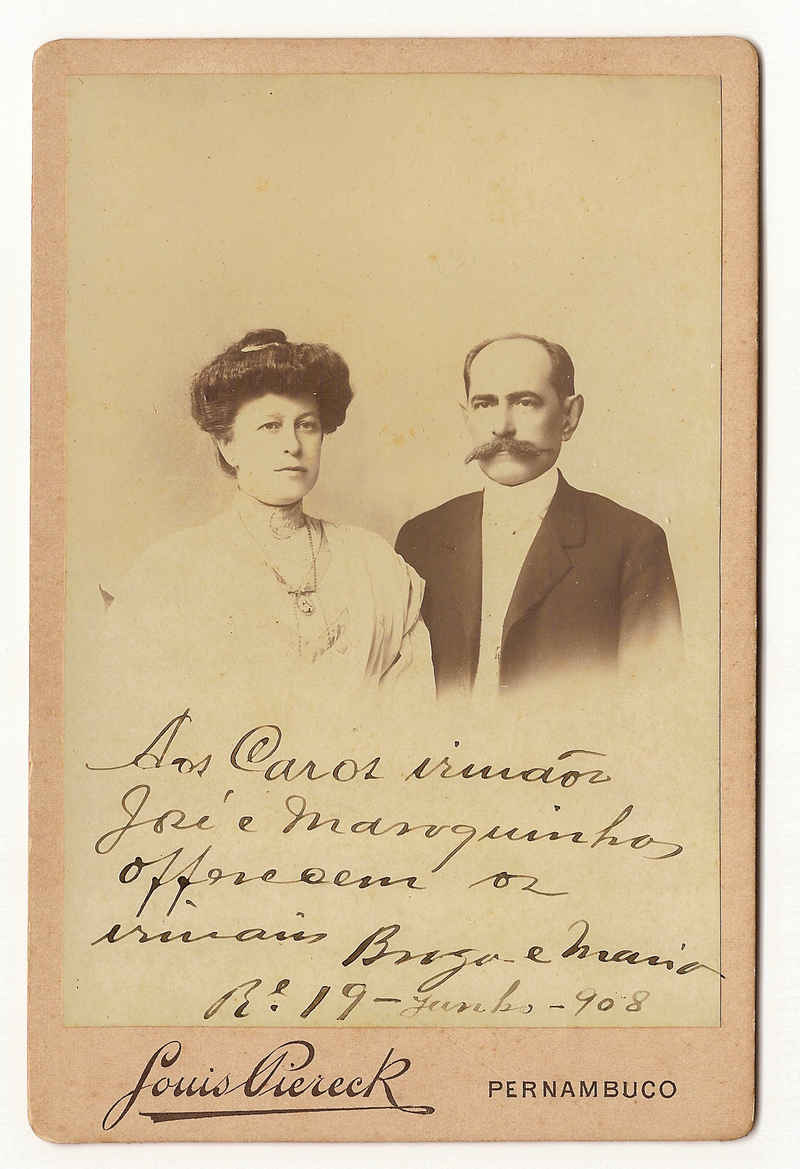 Aos Caros irmãos
José e Maroquinhas
offerecem os
irmãos Braga e Maria
Rᵉ. 19 - Junho - 908
Louis Piereck PERNAMBUCO